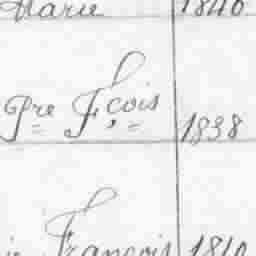 Marie 1840
Pre Fçois 1838
François 1840